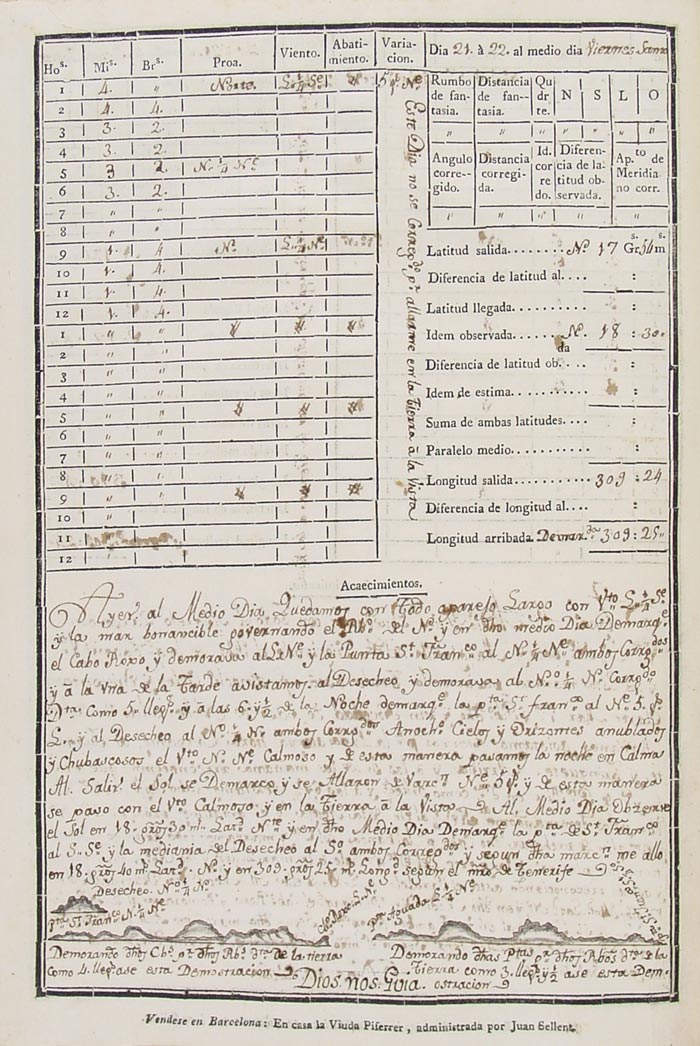 Hoˢ. Miˢ. Brˢ. Proa. Viento. Abatimiento. Variacion. Dia 21. à 22. al medio dia Viernes Santo
1 4. „ Norte. 5 gˢ Nᵉ
2 4. 4.
3 3. 2.
4 3. 2.
5 3 2. N. ¼ Nᵉ
6 3. 2.
7 „ „
8 „ „
9 1. 4 Nᵒ
10 1. 4.
11 1. 4.
12 1. 4.
1 „ „
2 „ „
3 „ „
4 „ „
5 „ „
6 „ „
7 „ „
8
9 „ „
10 „ „
11
12
Este Dia no se Corregᵒ pʳ allarme en la tierra â la Vista
Rumbo de fantasia. Distancia de fantasia. Qudrte. N S L O
„ „ „ „ „ „ „
Angulo corregido. Distancia corregida. Id. corredo. Diferencia de latitud observada. Ap.ᵗᵒ de Meridiano corr.
„ „ „ „ „
Latitud salida....... Nᵒ 17 Gr.ˢ 54 m.ˢ
Diferencia de latitud al.... :
Latitud llegada.......... :
Idem observada....... N. 18 : 30.
Diferencia de latitud ob.ᵈᵃ.... :
Idem de estima........ :
Suma de ambas latitudes.... :
Paralelo medio.......... :
Longitud salida.......... 309 : 24
Diferencia de longitud al.... :
Longitud arribada. Demarᵈᵃ 309 : 25„
Acaecimientos.
Ayer al Medio Dia Quedamos con todo aparejo Largo con Vᵗᵒ L. ¼ Sᵉ
y la mar bonancible governando el Rbᵒ del Nᵒ y en dhᵒ medio Dia Demarqᵉ
el Cabo Roxo y demorava al L. Nᵉ y la Punta Sⁿ Franᶜᵒ al N. ¼ Nᵉ ambos Corregᵈᵒˢ
y â la Una de la tarde avistamos al Desecheo y demorava al Nᵒ ¼ Nᵒ Corregᵈᵒ
Dᵗᵃ Como 5. llegˢ y a las 6. y ½ de la Noche demarqᵉ la pᵗᵃ Sⁿ franᶜᵒ al Nᵉ. 5. gˢ
L. y al Desecheo al Nᵒ ¼ N. ambos Corregᵈᵒˢ Anochᵒ Cielos y Orizontes anublados
y Chubascosos el Vᵗᵒ N. Nᵒ Calmoso y de esta manera pasamos la noche en Calma
Al Salirˡ el Sol se Demarco y se Allaron de Varcⁿ Nᵉ 5 gˢ y de esta manera
se paso con el Vᵗᵒ Calmoso y en la tierra â la Vista Al Medio Dia Obzerve
el Sol en 18. gᵒˢ 30 mˢ Latᵈ Nᵗᵉ y en dhᵒ Medio Dia Demarqᵉ la pᵗᵃ de Sⁿ Franᶜᵒ
al S. Sᵉ y la mediania del Desecheo al Sᵒ ambos Corregᵈᵒˢ y segun dha marcⁿ me allo
en 18. gᵒˢ 40 mˢ Latᵈ Nᵗᵉ y en 309. gᵒˢ 25 mˢ Longᵈ segun el mrᵒ de Tenerife
Desecheo Nᵒ ¼ Nᵒ
pᵗᵃ Sⁿ Franᶜᵒ N. ¼ Nᵉ
Cbᵒ Roxo L. Nᵉ
pᵗᵃ Aguada L. ¼ Nᵉ
Demorando dhos Cbˢ pʳ dhos Rbˢ dᵗᵉ de la tierra
como 4. llegˢ ase esta Demostracion
Demorando dhas Ptas pʳ dhos Rbos dᵗᵉ de la
tierra como 3. llegˢ y ½ ase esta Demostracion
Dios nos Guia.
Vendese en Barcelona: En casa la Viuda Piferrer, administrada por Juan Sellent.